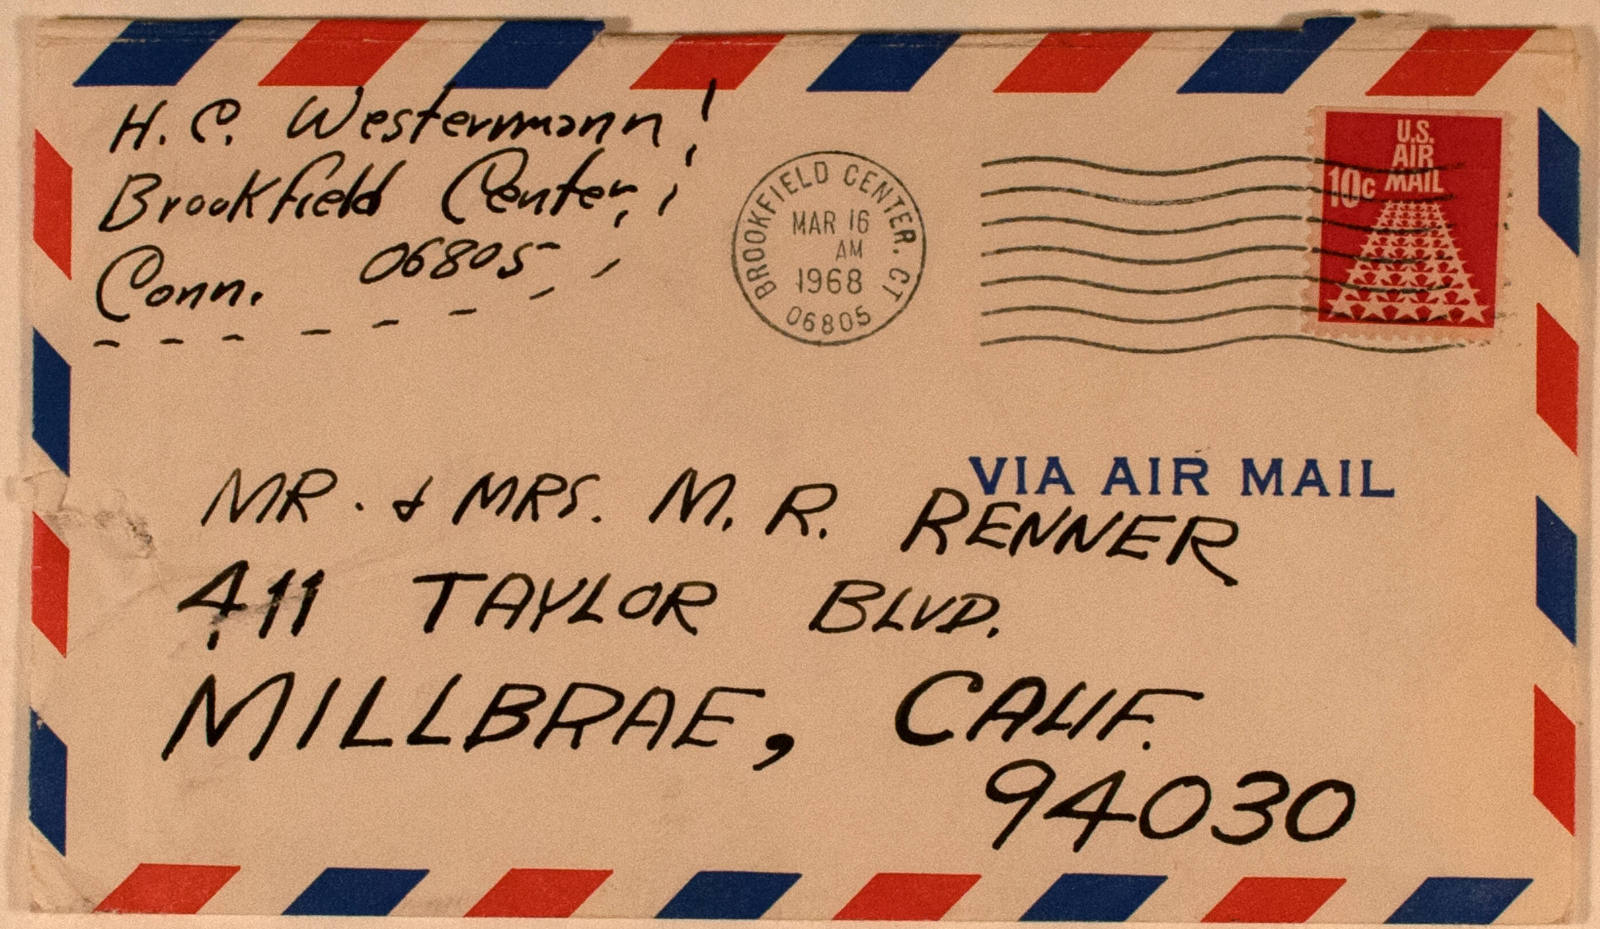 H. C. Westermann!
Brookfield Center,
Conn. 06805
BROOKFIELD CENTER. CT
MAR 16
AM
1968
06805
U.S.
AIR
MAIL
10c
VIA AIR MAIL
MR. & MRS. M. R. RENNER
411 TAYLOR BLVD.
MILLBRAE, CALIF.
94030